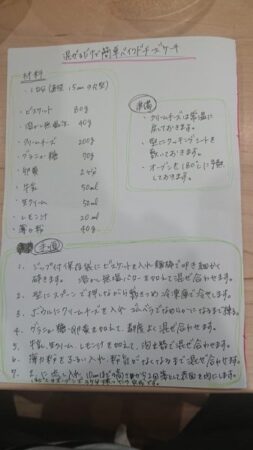 混ぜるだけで簡単ベイクドチーズケーキ
材料
1台分(直径15cm丸型)
・ビスケット 80g
・溶かし無塩バター 40g
・クリームチーズ 200g
・グラニュー糖 70g
・卵黄 2ヶ分
・牛乳 50ml
・生クリーム 50ml
・レモン汁 20ml
・薄力粉 40g
準備
・クリームチーズは常温に
戻しておきます。
・型にクッキングシートを
敷いておきます。
・オーブンを180℃に予熱
しておきます。
手順
1. ジップ付保存袋にビスケットを入れ麺棒で叩き細かく
砕きます。 溶かし無塩バターを加えて混ぜ合わせます。
2. 型にスプーンで押しながら敷きつめ冷凍庫で冷やします。
3. ボウルにクリームチーズを入れ ゴムベラでなめらかになるまで練る。
4. グラニュー糖・卵黄を加えて、都度よく混ぜ合わせます。
5. 牛乳、生クリーム、レモン汁を加えて、泡立器で混ぜ合わせます。
6. 薄力粉をふるい入れ、粉気がなくなるまで混ぜ合わせます。
7. 2.に流し入れ、10cmほどの高さから2回落として表面を平にします。